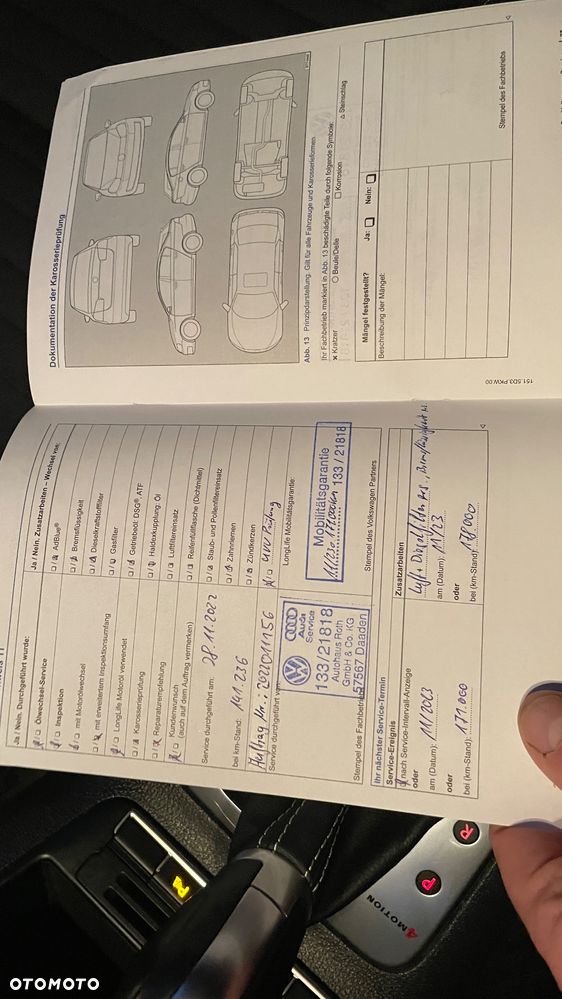 Ja / Nein. Durchgeführt wurde:
Ölwechsel-Service
Inspektion
mit Motorölwechsel
mit erweitertem Inspektionsumfang
LongLife Motoröl verwendet
Karosserieprüfung
Reparaturempfehlung
Kundenwunsch
(auch auf dem Auftrag vermerken)
Service durchgeführt am: 28.11.2022
bei km-Stand: 141.236
Auftrag Nr.:
Service durchgeführt von:
Audi
Service
133/21818
Autohaus Roth
GmbH & Co. KG
57567 Daaden
Stempel des Fachbetriebs
Ja / Nein, Zusatzarbeiten – Wechsel von:
AdBlue®
Bremsflüssigkeit
Dieselkraftstofffilter
Gasfilter
Getriebeöl: DSG®, ATF
Haldexkupplung: Öl
Luftfiltereinsatz
Reifenfüllflasche (Dichtmittel)
Staub- und Pollenfiltereinsatz
Zahnriemen
Zündkerzen
UVV Prüfung
LongLife Mobilitätsgarantie:
Mobilitätsgarantie
133 / 21818
Stempel des Volkswagen Partners
Ihr nächster Service-Termin
Service-Ereignis
nach Service-Intervall-Anzeige
oder
am (Datum): 11/2023
oder
bei (km-Stand): 171.000
Zusatzarbeiten
Luft + Dieselfilter
am (Datum): 11/23
oder
bei (km-Stand): 171000
Dokumentation der Karosserieprüfung
Abb. 13 Prinzipdarstellung: Gilt für alle Fahrzeuge und Karosserieformen
Ihr Fachbetrieb markiert in Abb. 13 beschädigte Teile durch folgende Symbole:
× Kratzer ○ Beule/Delle □ Korrosion △ Steinschlag
Mängel festgestellt? Ja: Nein:
Beschreibung der Mängel:
Stempel des Fachbetriebs
151.5D3.PKW.00
4MOTION
P
R
OTOMOTO